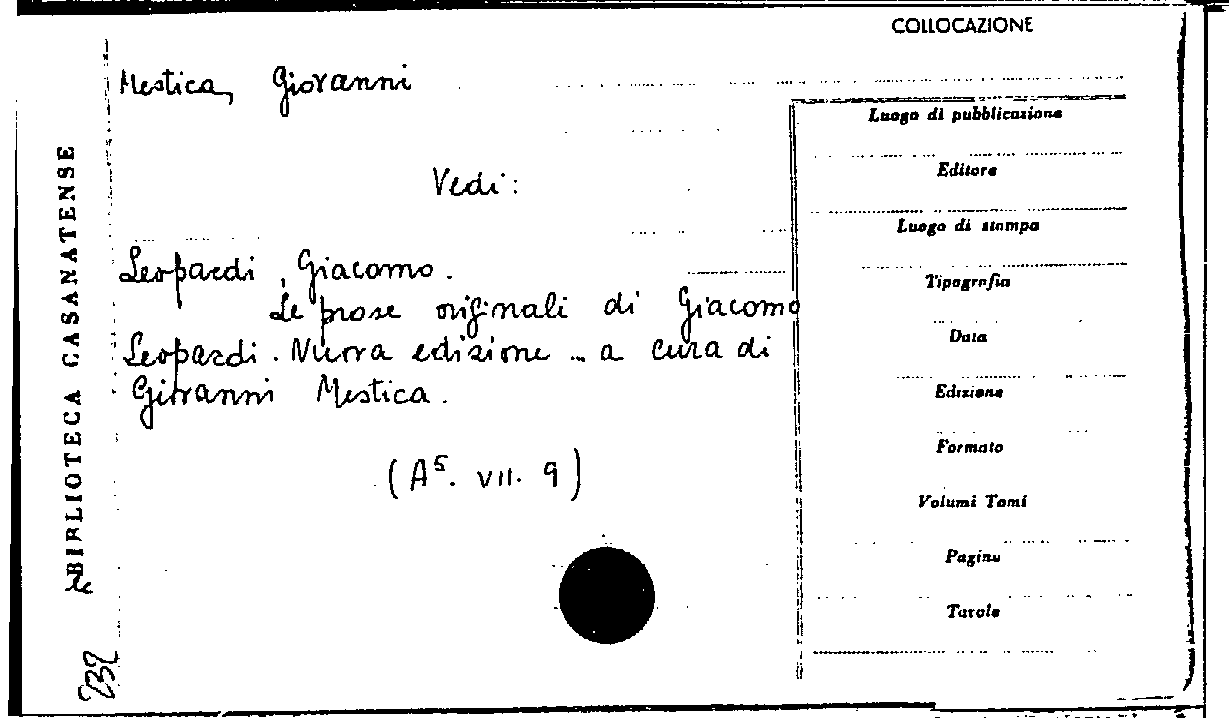 COLLOCAZIONE
Mestica, Giovanni
Vedi:
Leopardi, Giacomo.
Le prose originali di Giacomo
Leopardi. Nuova edizione .. a cura di
Giovanni Mestica.
(A5. VII. 9)
Luogo di pubblicazione
Editore
Luogo di stampa
Tipografia
Data
Edizione
Formato
Volumi Tomi
Pagine
Tavole
BIBLIOTECA CASANATENSE
232